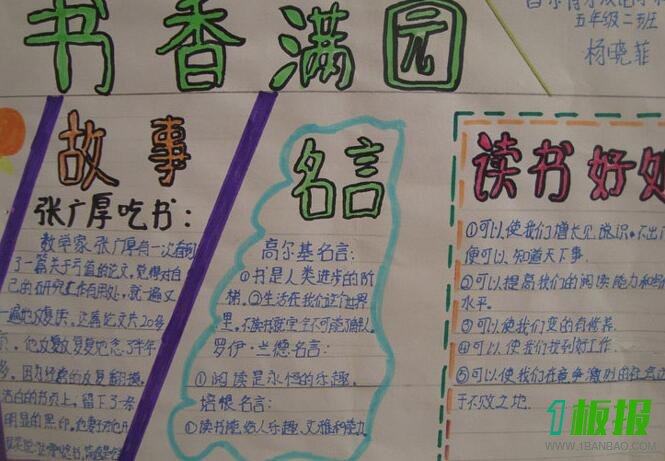 书香满园
五年级二班
杨晓菲
故事
张广厚吃书:
数学家张广厚有一次看到
了一篇关于亏值的论文,觉得对自
己的研究工作有用处,就一遍又
一遍地反复读。这篇论文共20多
页,他反复反复地念了半年
多。因为经常的反复翻摸,
洁白的书页上,留下了一条
明显的黑印。他的妻子对他开
名言
高尔基名言:
①书是人类进步的阶
梯。②生活在我们这个世界
里,不读书就完全不可能了解人。
罗伊·兰德名言:
①阅读是永恒的乐趣。
培根名言:
①读书能给人乐趣、文雅和能力。
读书好处
①可以使我们增长见识。不出门
便可以知道天下事。
②可以提高我们的阅读能力和
水平。
③可以使我们变的有修养。
④可以使我们找到好工作。
⑤可以使我们在竞争激烈的社会
于不败之地。
1板报
WWW.1BANBAO.COM